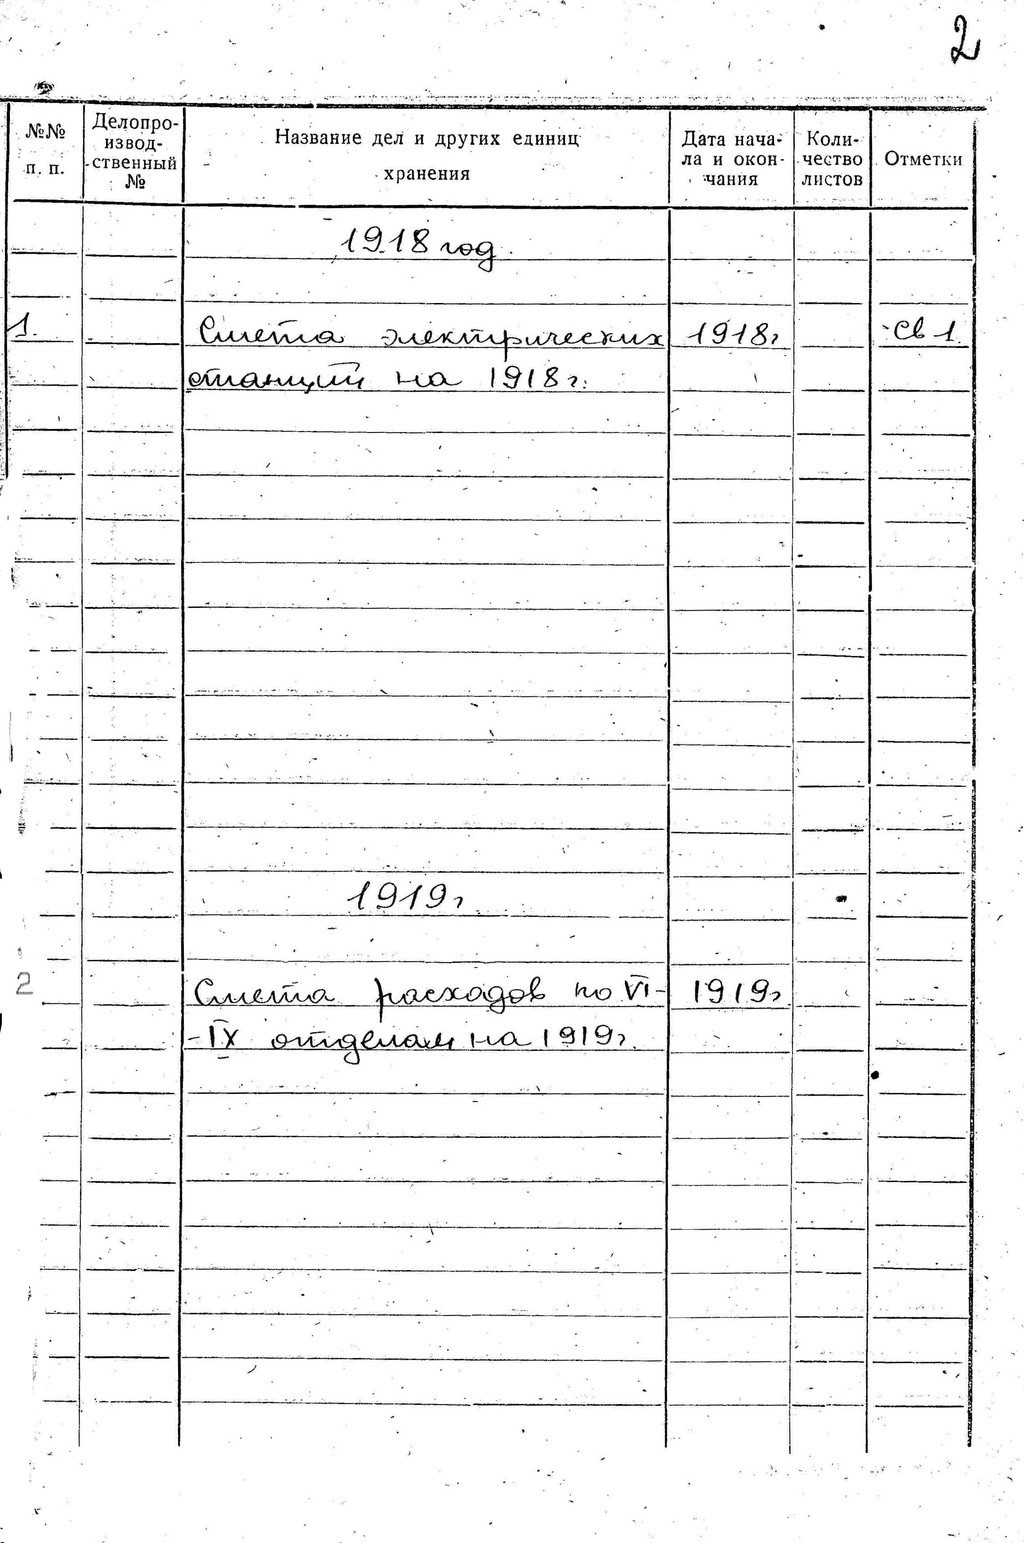 2
№№ п. п.
Делопро-
извод-
ственный
№
Название дел и других единиц
хранения
Дата нача-
ла и окон-
чания
Коли-
чество
листов
Отметки
1918 год.
1. Смета электрических 1918г св 1.
станций на 1918г.
1919г
2 Смета расходов по VI- 1919г
-IX отделам на 1919г.